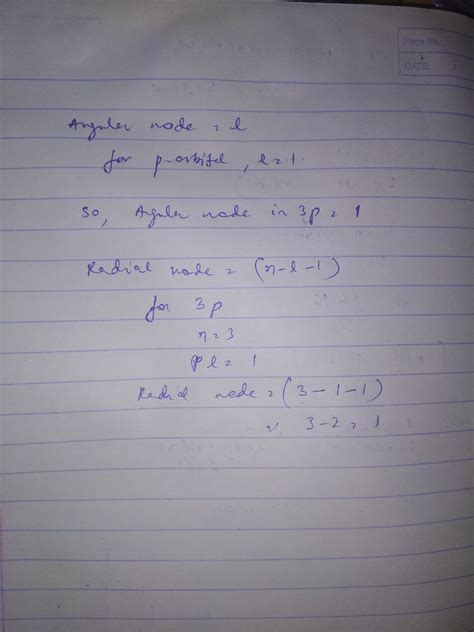 Page No.
DATE:
Angular node = l
for p-orbital, l = 1
so, Agular node in 3p = 1
Radial node = (n-l-1)
for 3p
n = 3
l = 1
Radial node = (3-1-1)
= 3-2 = 1